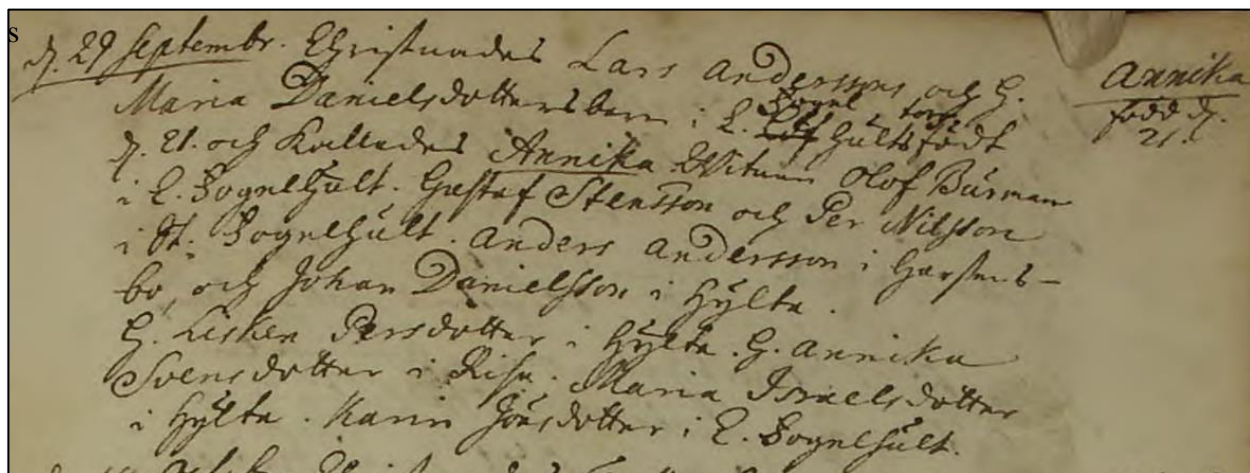 s
d. 29 Septembr. Christnades Lars Anderssons och H.
Maria Danielsdotters barn i L. Fogel torp
Hults födt
d. 21. och Kallades Annika. Witnen Olof Burman
i L. Fogelhult. Gustaf Stensson och Per Nilsson
i St. Fogelhult. Anders Andersson i
bo, och Johan Danielsson i Hylte.
H. Lisken Persdotter i Hylte. H. Annika
Svensdotter i Risa. Maria Israelsdotter
i Hylte. Karin Jönsdotter i L. Fogelhult.
Annika
född d.
21.